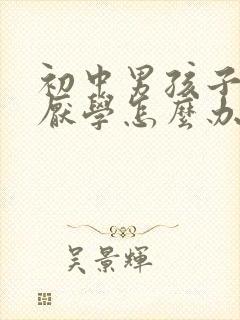 初中男孩子
厭學怎麼办
吳景輝